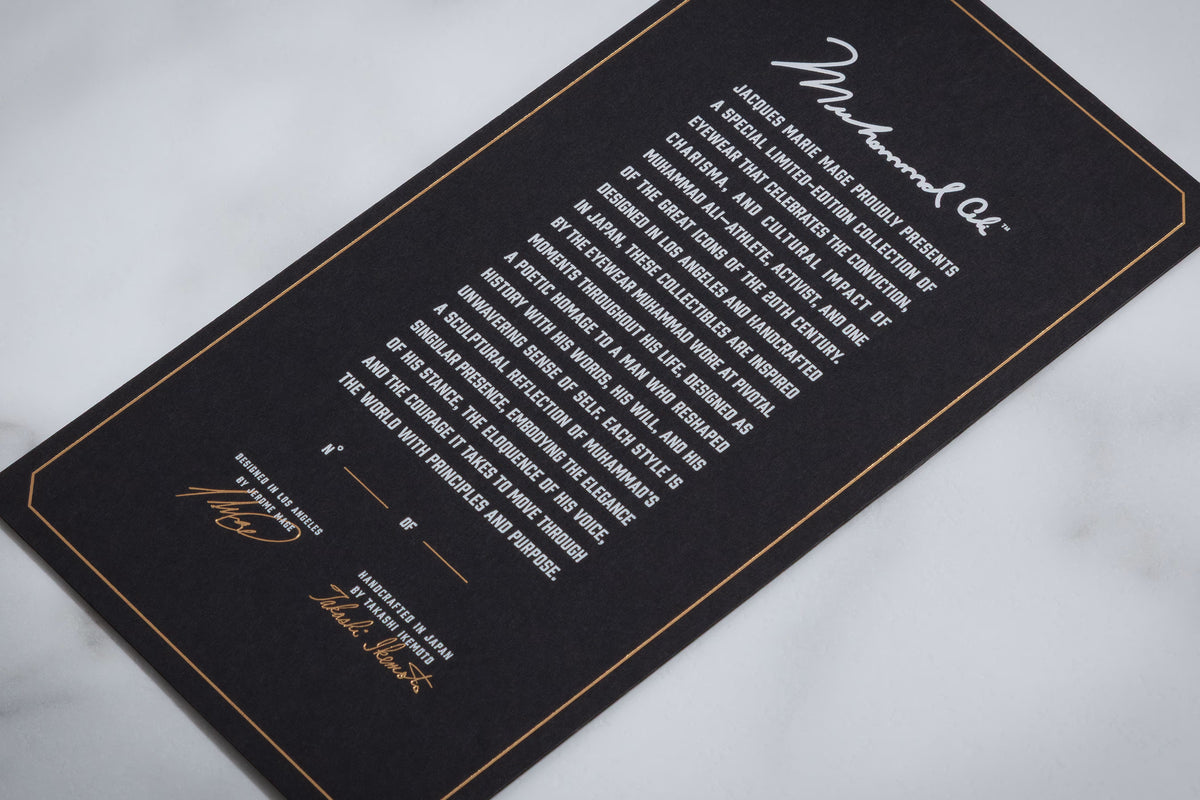 Muhammad Ali™
JACQUES MARIE MAGE PROUDLY PRESENTS
A SPECIAL LIMITED-EDITION COLLECTION OF
EYEWEAR THAT CELEBRATES THE CONVICTION,
CHARISMA, AND CULTURAL IMPACT OF
MUHAMMAD ALI—ATHLETE, ACTIVIST, AND ONE
OF THE GREAT ICONS OF THE 20TH CENTURY.
DESIGNED IN LOS ANGELES AND HANDCRAFTED
IN JAPAN, THESE COLLECTIBLES ARE INSPIRED
BY THE EYEWEAR MUHAMMAD WORE AT PIVOTAL
MOMENTS THROUGHOUT HIS LIFE. DESIGNED AS
A POETIC HOMAGE TO A MAN WHO RESHAPED
HISTORY WITH HIS WORDS, HIS WILL, AND HIS
UNWAVERING SENSE OF SELF. EACH STYLE IS
A SCULPTURAL REFLECTION OF MUHAMMAD'S
SINGULAR PRESENCE, EMBODYING THE ELEGANCE
OF HIS STANCE, THE ELOQUENCE OF HIS VOICE,
AND THE COURAGE IT TAKES TO MOVE THROUGH
THE WORLD WITH PRINCIPLES AND PURPOSE.
Nº ____ OF ____
DESIGNED IN LOS ANGELES
BY JEROME MAGE
HANDCRAFTED IN JAPAN
BY TAKASHI IKEMOTO
Takashi Ikemoto